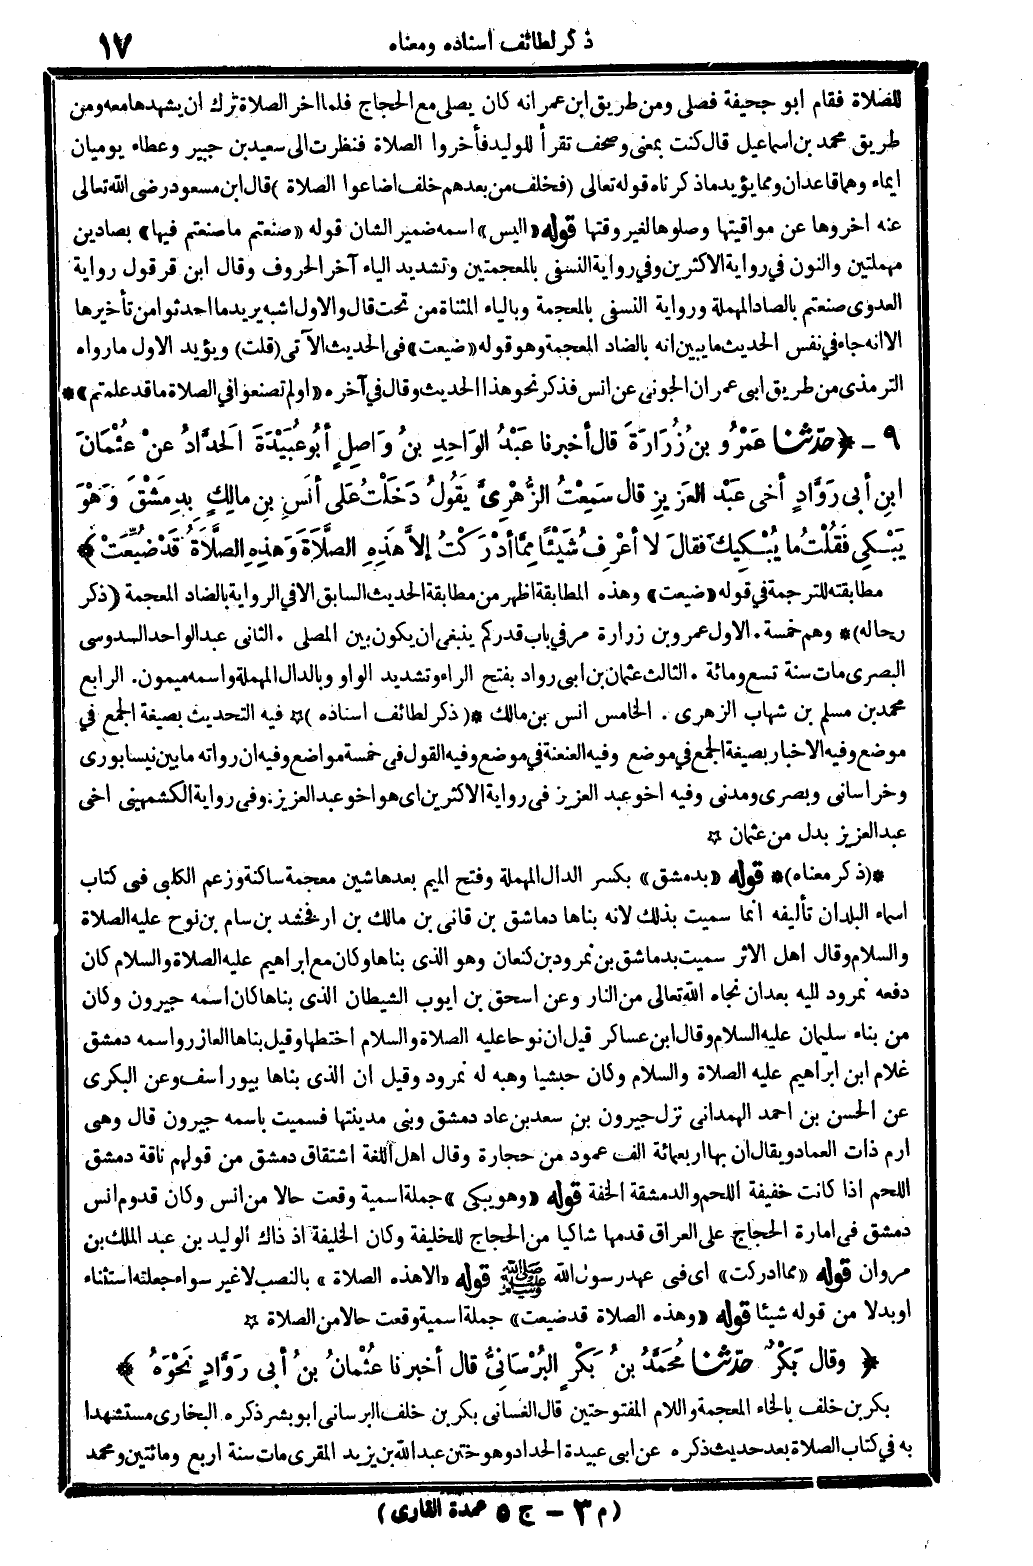 ذكر لطائف اسناده ومعناه ١٧
للصلاة فقام ابو جحيفة فصلى ومن طريق ابن عمر انه كان يصلى مع الحجاج فلما اخر الصلاة ترك ان يشهدها معه ومن
طريق محمد بن اسماعيل قال كنت بمعنى وصحف تقرأ للوليد فأخروا الصلاة فنظرت الى سعيد بن جبير وعطاء يوميان
ايماء وهما قاعدان ومما يؤيد ما ذكرناه قوله تعالى (فخلف من بعدهم خلف اضاعوا الصلاة) قال ابن مسعود رضى الله تعالى
عنه اخروها عن مواقيتها وصلوها لغير وقتها قوله «اليس» اسمه ضمير الشان قوله «صنعتم ما صنعتم فيها» بصادين
مهملتين والنون في رواية الاكثرين وفي رواية النسفى بالمعجمتين وتشديد الياء آخر الحروف وقال ابن قرقول رواية
العدوى صنعتم بالصاد المهملة ورواية النسفى بالمعجمة وبالياء المثناة من تحت قال والاول اشبه يريد ما احدثوا من تأخيرها
الا انه جاء في نفس الحديث ما يبين انه بالضاد المعجمة وهو قوله «ضيعت» فى الحديث الآتى (قلت) ويؤيد الاول ما رواه
الترمذى من طريق ابى عمران الجونى عن انس فذكر نحو هذا الحديث وقال في آخره «اولم تصنعوا في الصلاة ما قد علمتم» *
٩ - ﴿حدّثنا عَمْرُو بنُ زُرَارَةَ قال أخبرنا عَبْدُ الوَاحِدِ بنُ وَاصِلٍ أبُو عُبَيْدَةَ الحَدَّادُ عنْ عُثْمَانَ
ابنِ أبى رَوَّادٍ أخى عَبْدِ العَزِيزِ قال سَمِعْتُ الزُّهْرِىَّ يَقُولُ دَخَلْتُ عَلى أنَسِ بنِ مالِكٍ بِدِمَشْقَ وَهْوَ
يَبْكِى فَقُلْتُ ما يُبْكِيكَ فقالَ لا أعْرِفُ شَيْئًا مِمَّا أدْرَكْتُ إلاَّ هذِهِ الصَّلاَةَ وَهذِهِ الصَّلاَةُ قَدْ ضُيِّعَتْ﴾
مطابقته للترجمة في قوله «ضيعت» وهذه المطابقة اظهر من مطابقة الحديث السابق الا في الرواية بالضاد المعجمة (ذكر
رجاله) * وهم خمسة. الاول عمرو بن زرارة مر في باب قدركم ينبغى ان يكون بين المصلى. الثانى عبد الواحد السدوسى
البصرى مات سنة تسع ومائة. الثالث عثمان بن ابى رواد بفتح الراء وتشديد الواو وبالدال المهملة واسمه ميمون. الرابع
محمد بن مسلم بن شهاب الزهرى. الخامس انس بن مالك * (ذكر لطائف اسناده) ☆ فيه التحديث بصيغة الجمع في
موضع وفيه الاخبار بصيغة الجمع في موضع وفيه العنعنة في موضع وفيه القول فى خمسة مواضع وفيه ان رواته ما بين نيسابورى
وخراسانى وبصرى ومدنى وفيه اخو عبد العزيز فى رواية الاكثرين اى هو اخو عبد العزيز: وفى رواية الكشمهينى اخى
عبد العزيز بدل من عثمان ☆
*(ذكر معناه)* قوله «بدمشق» بكسر الدال المهملة وفتح الميم بعدها شين معجمة ساكنة وزعم الكلبى فى كتاب
اسماء البلدان تأليفه انما سميت بذلك لانه بناها دماشق بن قانى بن مالك بن ارفخشد بن سام بن نوح عليه الصلاة
والسلام وقال اهل الاثر سميت بدماشق بن نمرود بن كنعان وهو الذى بناها وكان مع ابراهيم عليه الصلاة والسلام كان
دفعه نمرود لليه بعد ان نجاه الله تعالى من النار وعن اسحق بن ايوب الشيطان الذى بناها كان اسمه جيرون وكان
من بناء سليمان عليه السلام وقال ابن عساكر قيل ان نوحا عليه الصلاة والسلام اختطها وقيل بناها العازر واسمه دمشق
غلام ابن ابراهيم عليه الصلاة والسلام وكان حبشيا وهبه له نمرود وقيل ان الذى بناها بيوراسف وعن البكرى
عن الحسن بن احمد الهمدانى نزل جيرون بن سعد بن عاد دمشق وبنى مدينتها فسميت باسمه جيرون قال وهى
ارم ذات العماد ويقال ان بها اربعمائة الف عمود من حجارة وقال اهل اللغة اشتقاق دمشق من قولهم ناقة دمشق
اللحم اذا كانت خفيفة اللحم والدمشقة الخفة قوله «وهو يبكى» جملة اسمية وقعت حالا من انس وكان قدوم انس
دمشق فى امارة الحجاج على العراق قدمها شاكيا من الحجاج للخليفة وكان الخليفة اذ ذاك الوليد بن عبد الملك بن
مروان قوله «مما ادركت» اى فى عهد رسول الله ﷺ قوله «الا هذه الصلاة» بالنصب لا غير سواء جعلته استثناء
او بدلا من قوله شيئا قوله «وهذه الصلاة قد ضيعت» جملة اسمية وقعت حالا من الصلاة ☆
﴿وقال بَكْرٌ حدّثنا مُحَمَّدُ بنُ بَكْرٍ البُرْسَانِىُّ قال أخبرنا عُثْمانُ بنُ أبى رَوَّادٍ نَحْوَهُ﴾
بكر بن خلف بالخاء المعجمة واللام المفتوحتين قال الغسانى بكر بن خلف البرسانى ابو بشر ذكره البخارى مستشهدا
به في كتاب الصلاة بعد حديث ذكره عن ابى عبيدة الحداد وهو ختن عبد الله بن يزيد المقرى مات سنة اربع ومائتين ومحمد
(م ٣ - ج ٥ عمدة القارى)